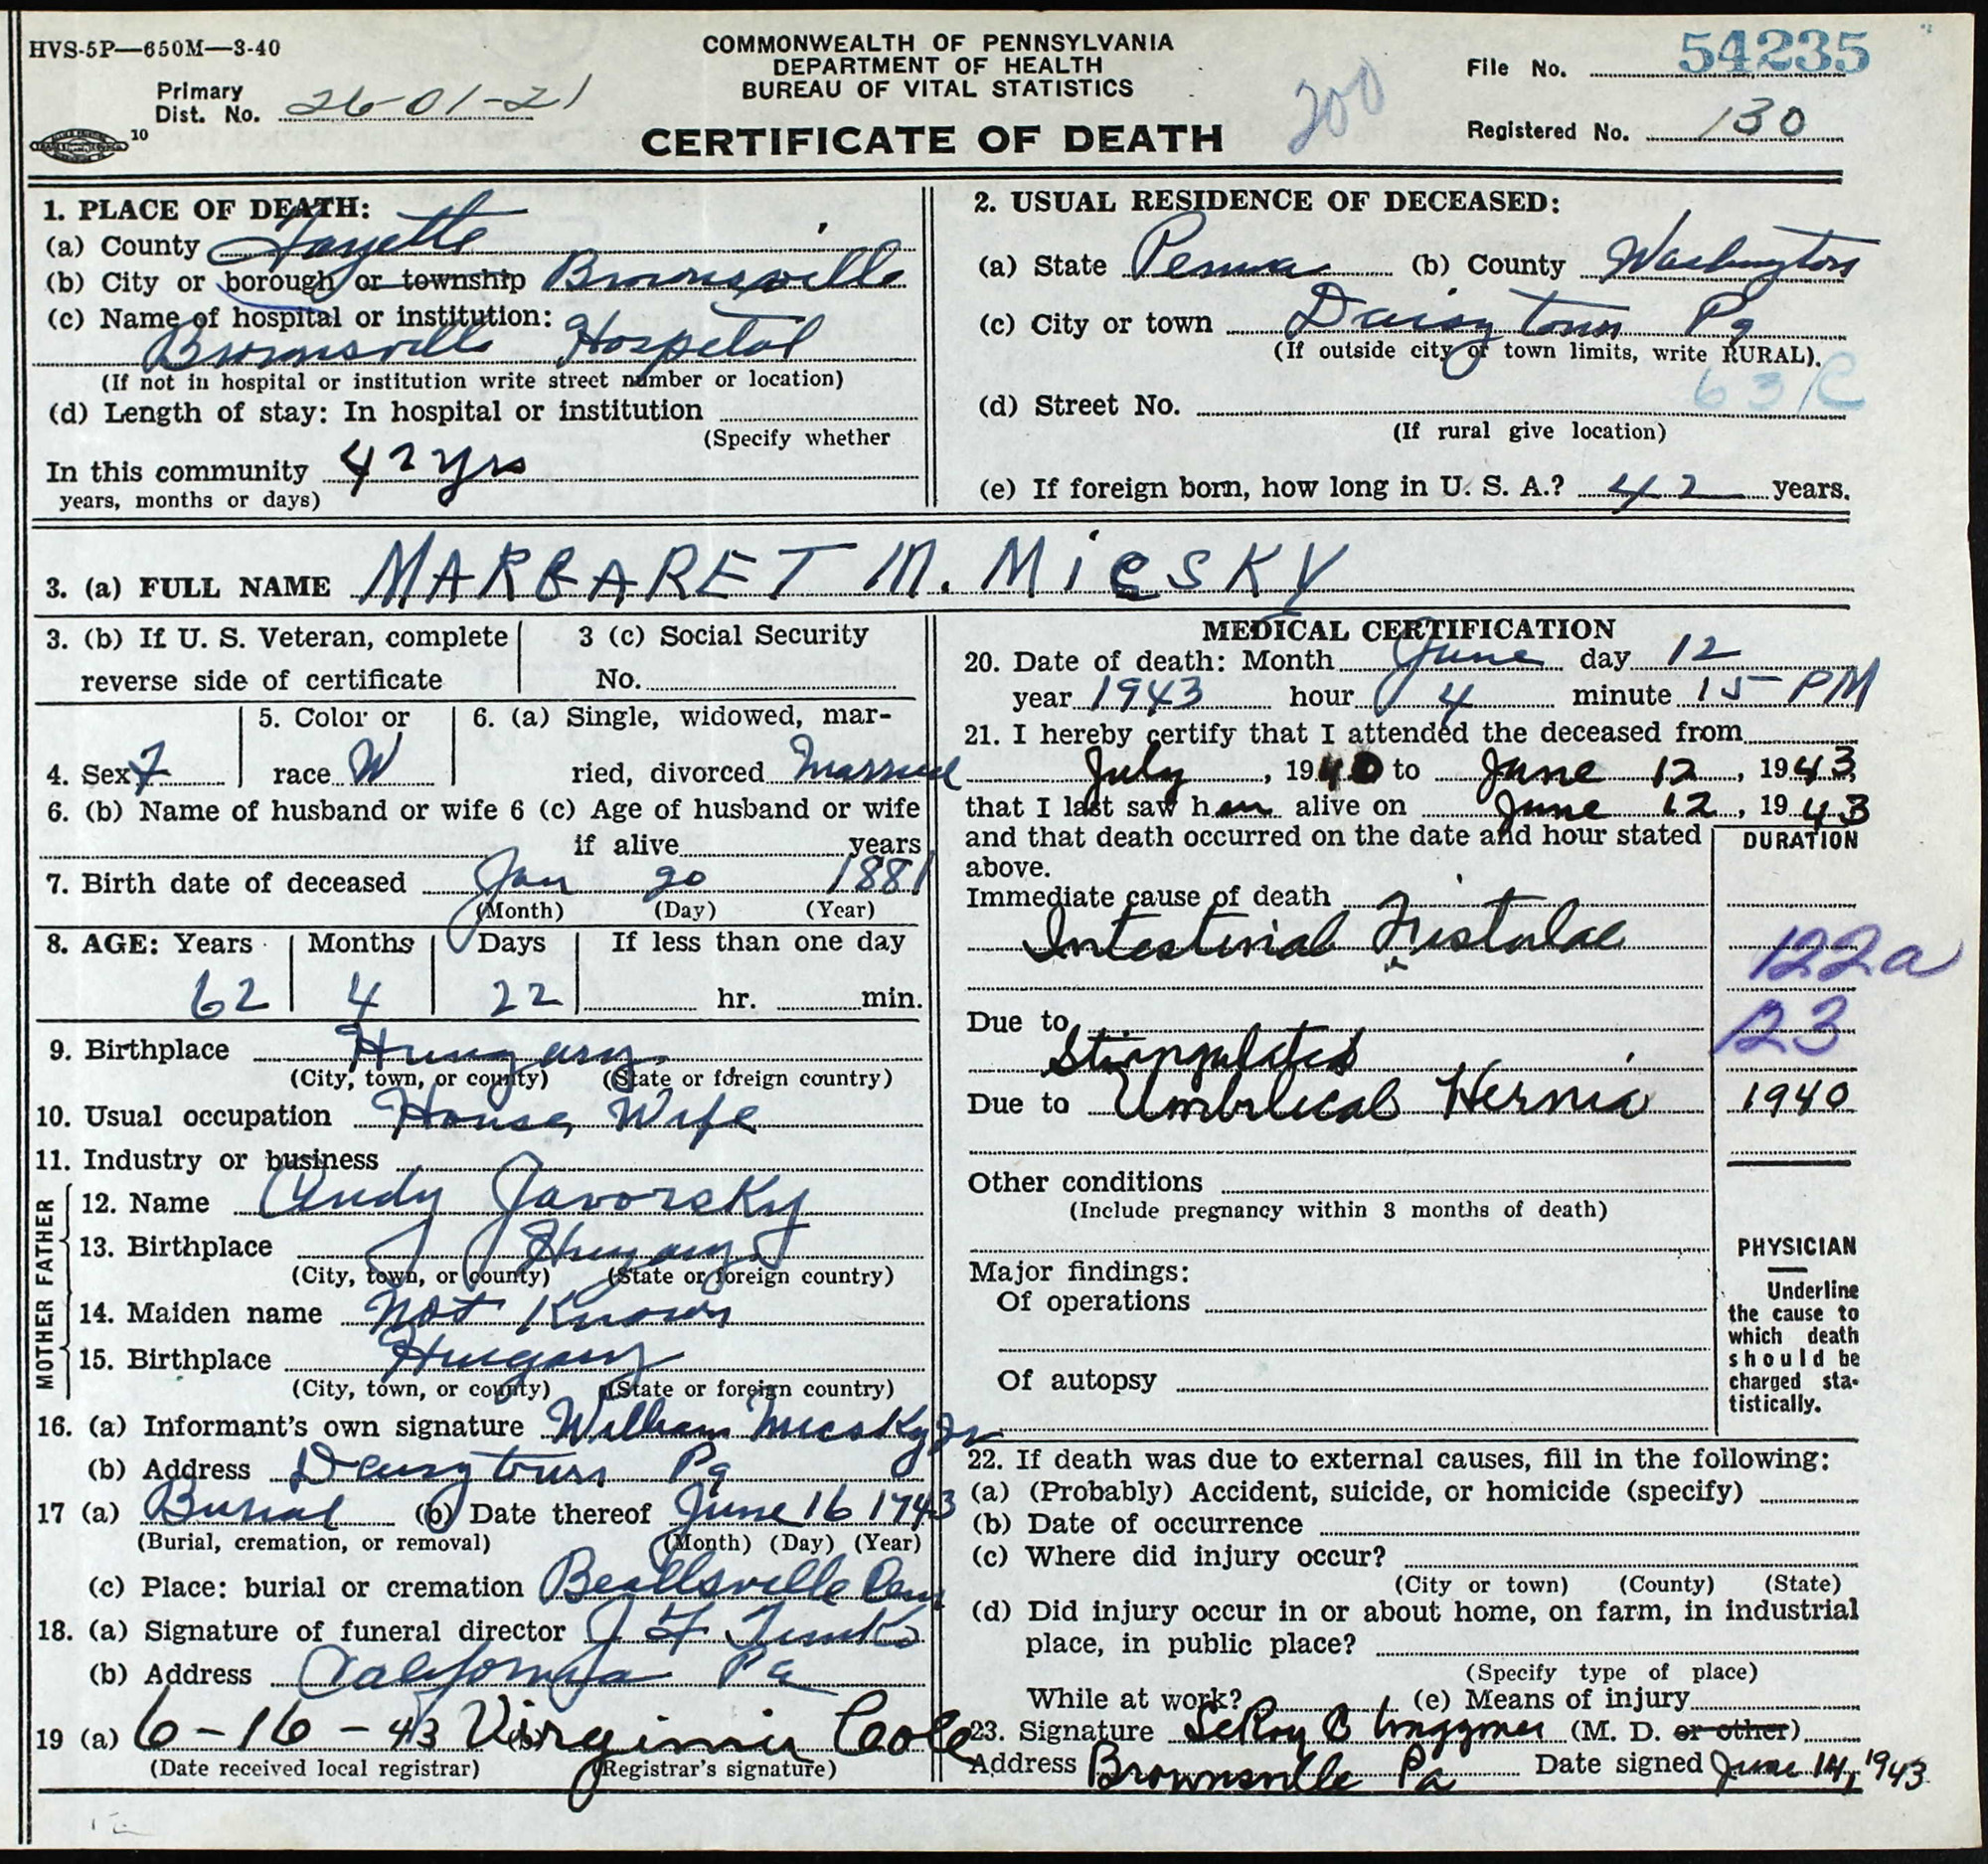 HVS-5P—650M—3-40
COMMONWEALTH OF PENNSYLVANIA
DEPARTMENT OF HEALTH
BUREAU OF VITAL STATISTICS
CERTIFICATE OF DEATH
200
File No. 54235
Primary
Dist. No. 26-01-21
Registered No. 130
10
1. PLACE OF DEATH:
(a) County Fayette
(b) City or borough or township Brownsville
(c) Name of hospital or institution:
Brownsville Hospital
(If not in hospital or institution write street number or location)
(d) Length of stay: In hospital or institution
(Specify whether
In this community 42 yrs
years, months or days)
2. USUAL RESIDENCE OF DECEASED:
(a) State Penna (b) County Washington
(c) City or town Daisytown Pa
(If outside city or town limits, write RURAL).
63R
(d) Street No.
(If rural give location)
(e) If foreign born, how long in U. S. A.? 42 years.
3. (a) FULL NAME MARGARET M. MiCSKY
3. (b) If U. S. Veteran, complete
reverse side of certificate
3 (c) Social Security
No.
4. Sex F
5. Color or
race W
6. (a) Single, widowed, mar-
ried, divorced Married
6. (b) Name of husband or wife 6 (c) Age of husband or wife
if alive years
7. Birth date of deceased Jan 20 1881
(Month) (Day) (Year)
8. AGE: Years Months Days If less than one day
62 4 22 hr. min.
9. Birthplace Hungary
(City, town, or county) (State or foreign country)
10. Usual occupation House Wife
11. Industry or business
FATHER
12. Name Andy Javorsky
13. Birthplace Hungary
(City, town, or county) (State or foreign country)
MOTHER
14. Maiden name Not Known
15. Birthplace Hungary
(City, town, or county) (State or foreign country)
16. (a) Informant's own signature William Micsky Jr
(b) Address Daisytown Pa
17 (a) Burial (b) Date thereof June 16 1943
(Burial, cremation, or removal) (Month) (Day) (Year)
(c) Place: burial or cremation Beallsville Cem
18. (a) Signature of funeral director J F
(b) Address California Pa
19 (a) 6-16-43 (b) Virginia Cole
(Date received local registrar) (Registrar's signature)
MEDICAL CERTIFICATION
20. Date of death: Month June day 12
year 1943 hour 4 minute 15 PM
21. I hereby certify that I attended the deceased from
July, 1940 to June 12, 1943,
that I last saw her alive on June 12, 1943
and that death occurred on the date and hour stated
above.
DURATION
Immediate cause of death
Intestinal Fistulae
122a
123
Due to
Strangulated
Due to Umbilical Hernia 1940
Other conditions
(Include pregnancy within 3 months of death)
Major findings:
Of operations
Of autopsy
PHYSICIAN
Underline
the cause to
which death
should be
charged sta-
tistically.
22. If death was due to external causes, fill in the following:
(a) (Probably) Accident, suicide, or homicide (specify)
(b) Date of occurrence
(c) Where did injury occur?
(City or town) (County) (State)
(d) Did injury occur in or about home, on farm, in industrial
place, in public place?
(Specify type of place)
While at work? (e) Means of injury
23. Signature LeRoy C Waggoner (M. D. or other)
Address Brownsville Pa Date signed June 14, 1943